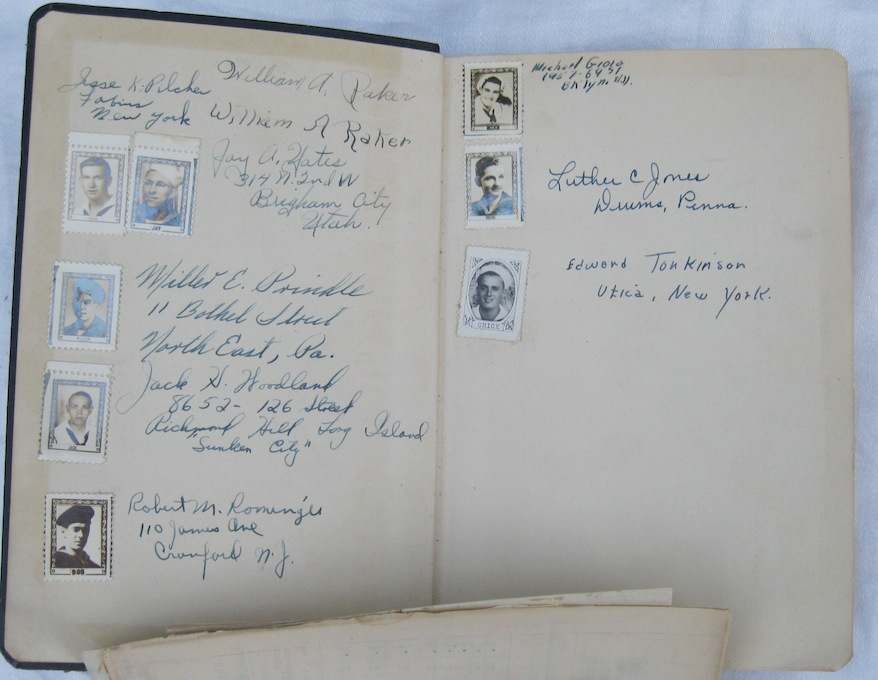 Jesse K. Pilcher
Fabius
New York
William A. Raker
William A Raker
Jay A. Yates
314 N. 2nd W
Brigham City
Utah.
JAY
Miller E. Prindle
11 Bothel Street
North East, Pa.
Jack H. Woodland
8652- 126 Street
Richmond Hill Long Island
"Sunken City"
JACK
Robert M. Romenger
110 James Ave
Cranford N. J.
BOB
Michael
Luther C Jones
Drums, Penna.
Edward Tonkinson
Utica, New York.
CHICK